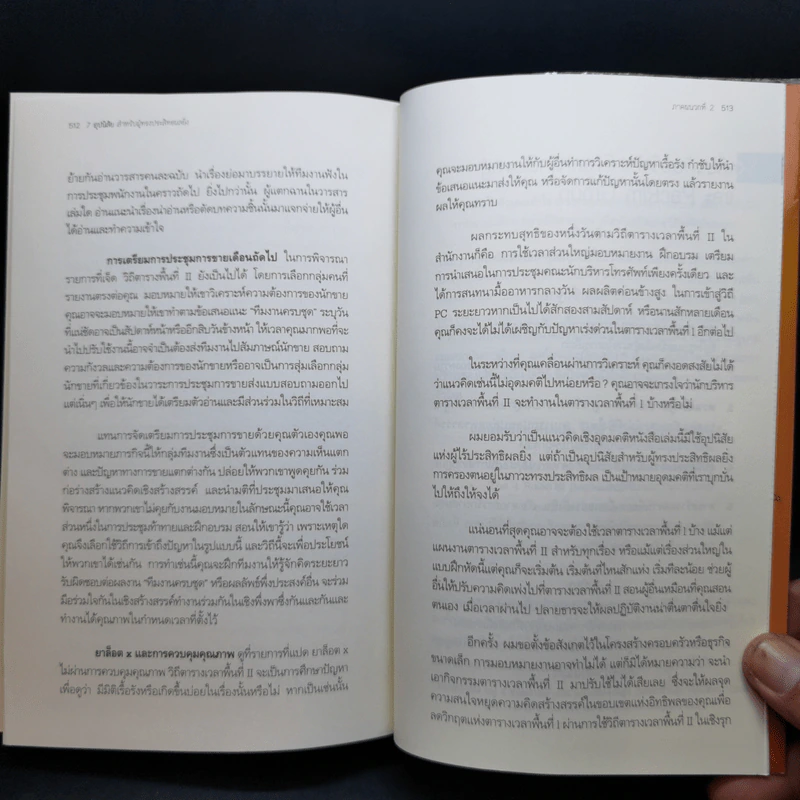 512 7 อุปนิสัย สำหรับผู้ทรงประสิทธิผลยิ่ง
ย้ายกันอ่านวารสารคนละฉบับ นำเรื่องย่อมาบรรยายให้ทีมงานฟังใน
การประชุมพนักงานในคราวถัดไป ยิ่งไปกว่านั้น ผู้แตกฉานในวารสาร
เล่มใด อ่านแนะนำเรื่องน่าอ่านหรือตัดบทความชิ้นนั้นมาแจกจ่ายให้ผู้อื่น
ได้อ่านและทำความเข้าใจ
การเตรียมการประชุมการขายเดือนถัดไป ในการพิจารณา
รายการที่เจ็ด วิถีตารางพื้นที่ II ยังเป็นไปได้ โดยการเลือกกลุ่มคนที่
รายงานตรงต่อคุณ มอบหมายให้เขาวิเคราะห์ความต้องการของนักขาย
คุณอาจจะมอบหมายให้เขาทำตามข้อเสนอแนะ "ทีมงานครบชุด" ระบุวัน
ที่แน่ชัดอาจเป็นสัปดาห์หน้าหรืออีกสิบวันข้างหน้า ให้เวลาคุณมากพอที่จะ
นำไปปรับใช้งานนี้อาจจำเป็นต้องส่งทีมงานไปสัมภาษณ์นักขาย สอบถาม
ความกังวลและความต้องการของนักขายหรืออาจเป็นการสุ่มเลือกกลุ่ม
นักขายที่เกี่ยวข้องในวาระการประชุมการขายส่งแบบสอบถามออกไป
แต่เนิ่นๆ เพื่อให้นักขายได้เตรียมตัวอ่านและมีส่วนร่วมในวิถีที่เหมาะสม
แทนการจัดเตรียมการประชุมการขายด้วยคุณตัวเองคุณพอ
จะมอบหมายภารกิจนี้ให้กลุ่มทีมงานซึ่งเป็นตัวแทนของความเห็นแตก
ต่าง และปัญหาทางการขายแตกต่างกัน ปล่อยให้พวกเขาพูดคุยกัน ร่วม
ก่อร่างสร้างแนวคิดเชิงสร้างสรรค์ และนำมติที่ประชุมมาเสนอให้คุณ
พิจารณา หากพวกเขาไม่คุยกับงานมอบหมายในลักษณะนี้คุณอาจใช้เวลา
ส่วนหนึ่งในการประชุมท้าทายและฝึกอบรม สอนให้เขารู้ว่า เพราะเหตุใด
คุณจึงเลือกใช้วิถีการเข้าถึงปัญหาในรูปแบบนี้ และวิถีนี้จะเพื่อประโยชน์
ให้พวกเขาได้เช่นกัน การทำเช่นนี้คุณจะฝึกทีมงานให้รู้จักคิดระยะยาว
รับผิดชอบต่อผลงาน "ทีมงานครบชุด" หรือผลลัพธ์พึงประสงค์อื่น จะร่วม
มือร่วมใจกันในเชิงสร้างสรรค์ทำงานร่วมกันในเชิงพึ่งพาซึ่งกันและกันและ
ทำงานได้คุณภาพในกำหนดเวลาที่ตั้งไว้
ยาล็อต x และการควบคุมคุณภาพ ดูที่รายการที่แปด ยาล็อต x
ไม่ผ่านการควบคุมคุณภาพ วิถีตารางเวลาพื้นที่ II จะเป็นการศึกษาปัญหา
เพื่อดูว่า มีมิติเรื้อรังหรือเกิดขึ้นบ่อยในเรื่องนั้นหรือไม่ หากเป็นเช่นนั้น
ภาคผนวกที่ 2 513
คุณจะมอบหมายงานให้กับผู้อื่นทำการวิเคราะห์ปัญหาเรื้อรัง กำชับให้นำ
ข้อเสนอแนะมาส่งให้คุณ หรือจัดการแก้ปัญหานั้นโดยตรง แล้วรายงาน
ผลให้คุณทราบ
ผลกระทบสุทธิของหนึ่งวันตามวิถีตารางเวลาพื้นที่ II ใน
สำนักงานก็คือ การใช้เวลาส่วนใหญ่มอบหมายงาน ฝึกอบรม เตรียม
การนำเสนอในการประชุมคณะนักบริหารโทรศัพท์เพียงครั้งเดียว และ
ได้การสนทนามื้ออาหารกลางวัน ผลผลิตค่อนข้างสูง ในการเข้าสู่วิถี
PC ระยะยาวหากเป็นไปได้สักสองสามสัปดาห์ หรือนานสักหลายเดือน
คุณก็คงจะได้ไม่ได้เผชิญกับปัญหาเร่งด่วนในตารางเวลาพื้นที่ I อีกต่อไป
ในระหว่างที่คุณเคลื่อนผ่านการวิเคราะห์ คุณก็คงอดสงสัยไม่ได้
ว่าแนวคิดเช่นนี้ไม่อุดมคติไปหน่อยหรือ ? คุณอาจจะเกรงใจว่านักบริหาร
ตารางเวลาพื้นที่ II จะทำงานในตารางเวลาพื้นที่ I บ้างหรือไม่
ผมยอมรับว่าเป็นแนวคิดเชิงอุดมคติหนังสือเล่มนี้มิใช่อุปนิสัย
แห่งผู้ไร้ประสิทธิผลยิ่ง แต่ถ้าเป็นอุปนิสัยสำหรับผู้ทรงประสิทธิผลยิ่ง
การครองตนอยู่ในภาวะทรงประสิทธิผล เป็นเป้าหมายอุดมคติที่เราบุกบั่น
ไปให้ถึงให้จงได้
แน่นอนที่สุดคุณอาจจะต้องใช้เวลาตารางเวลาพื้นที่ I บ้าง แม้แต่
แผนงานตารางเวลาพื้นที่ II สำหรับทุกเรื่อง หรือแม้แต่เรื่องส่วนใหญ่ใน
แบบฝึกหัดนี้แต่คุณก็จะเริ่มต้น เริ่มต้นที่ไหนสักแห่ง เริ่มทีละน้อย ช่วยผู้
อื่นให้ปรับความคิดเพ่งไปที่ตารางเวลาพื้นที่ II สอนผู้อื่นเหมือนที่คุณสอน
ตนเอง เมื่อเวลาผ่านไป ปลายธารจะให้ผลปฏิบัติงานน่าตื่นตาตื่นใจยิ่ง
อีกครั้ง ผมขอตั้งข้อสังเกตไว้ในโครงสร้างครอบครัวหรือธุรกิจ
ขนาดเล็ก การมอบหมายงานอาจทำไม่ได้ แต่ก็มิได้หมายความว่า จะนำ
เอากิจกรรมตารางเวลาพื้นที่ II มาปรับใช้ไม่ได้เสียเลย ซึ่งจะให้ผลจุด
ความสนใจหยุดความคิดสร้างสรรค์ในขอบเขตแห่งอิทธิพลของคุณเพื่อ
ลดวิกฤตแห่งตารางเวลาพื้นที่ I ผ่านการใช้วิถีตารางเวลาพื้นที่ II ในเชิงรุก